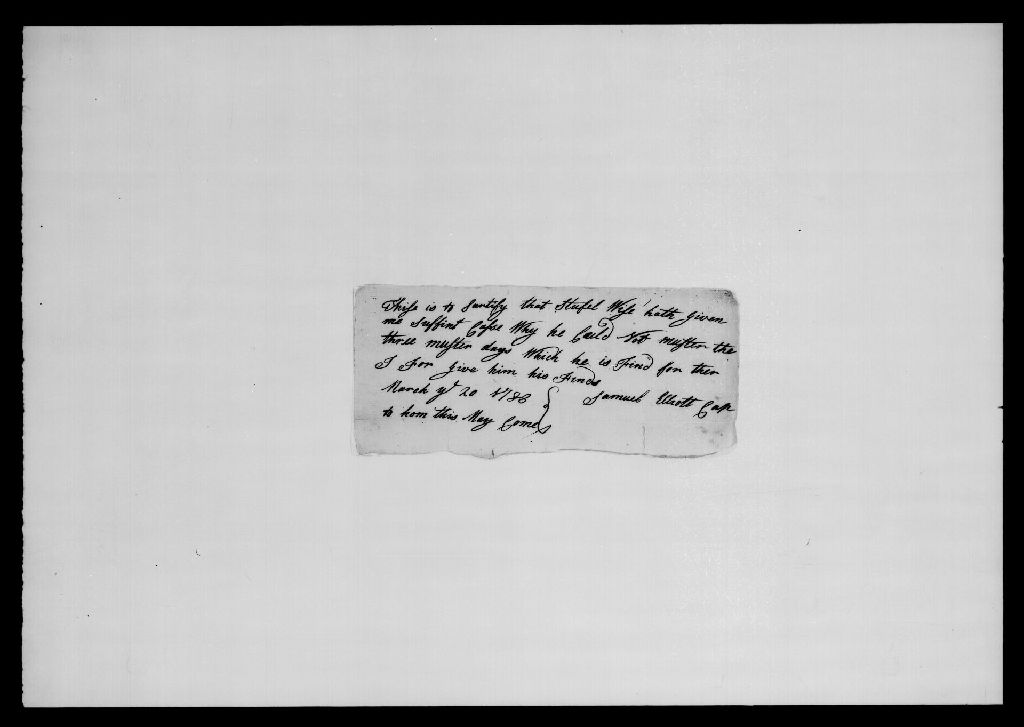 Thise is to Sartify that Stufel Wise hath given
me Suffint Case Why he Could Not muster the
three muster days Which he is Find for ther
I For give him his Finds
March yd 20 1786 } Samuel Elliott Capt
to hom this May Come